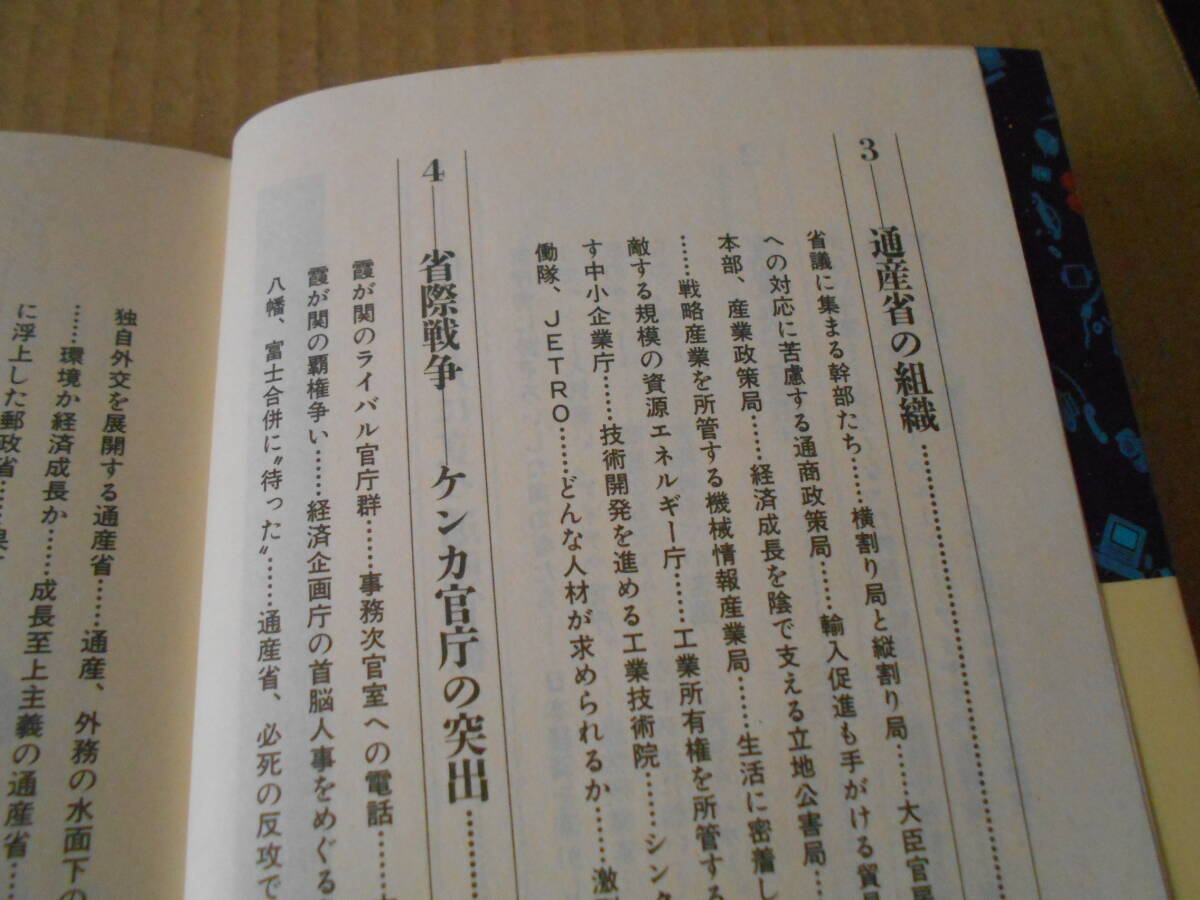 3──通産省の組織……………
省議に集まる幹部たち……横割り局と縦割り局……大臣官房
への対応に苦慮する通商政策局……輸入促進も手がける貿易
本部、産業政策局……経済成長を陰で支える立地公害局……
……戦略産業を所管する機械情報産業局……生活に密着し
敵する規模の資源エネルギー庁……工業所有権を所管する
す中小企業庁……技術開発を進める工業技術院……シンク
働隊、JETRO……どんな人材が求められるか……激
4──省際戦争──ケンカ官庁の突出………
霞が関のライバル官庁群……事務次官室への電話……
霞が関の覇権争い……経済企画庁の首脳人事をめぐる
八幡、富士合併に〝待った〟……通産省、必死の反攻で
独自外交を展開する通産省……通産、外務の水面下の
……環境か経済成長か……成長至上主義の通産省……
に浮上した郵政省……異